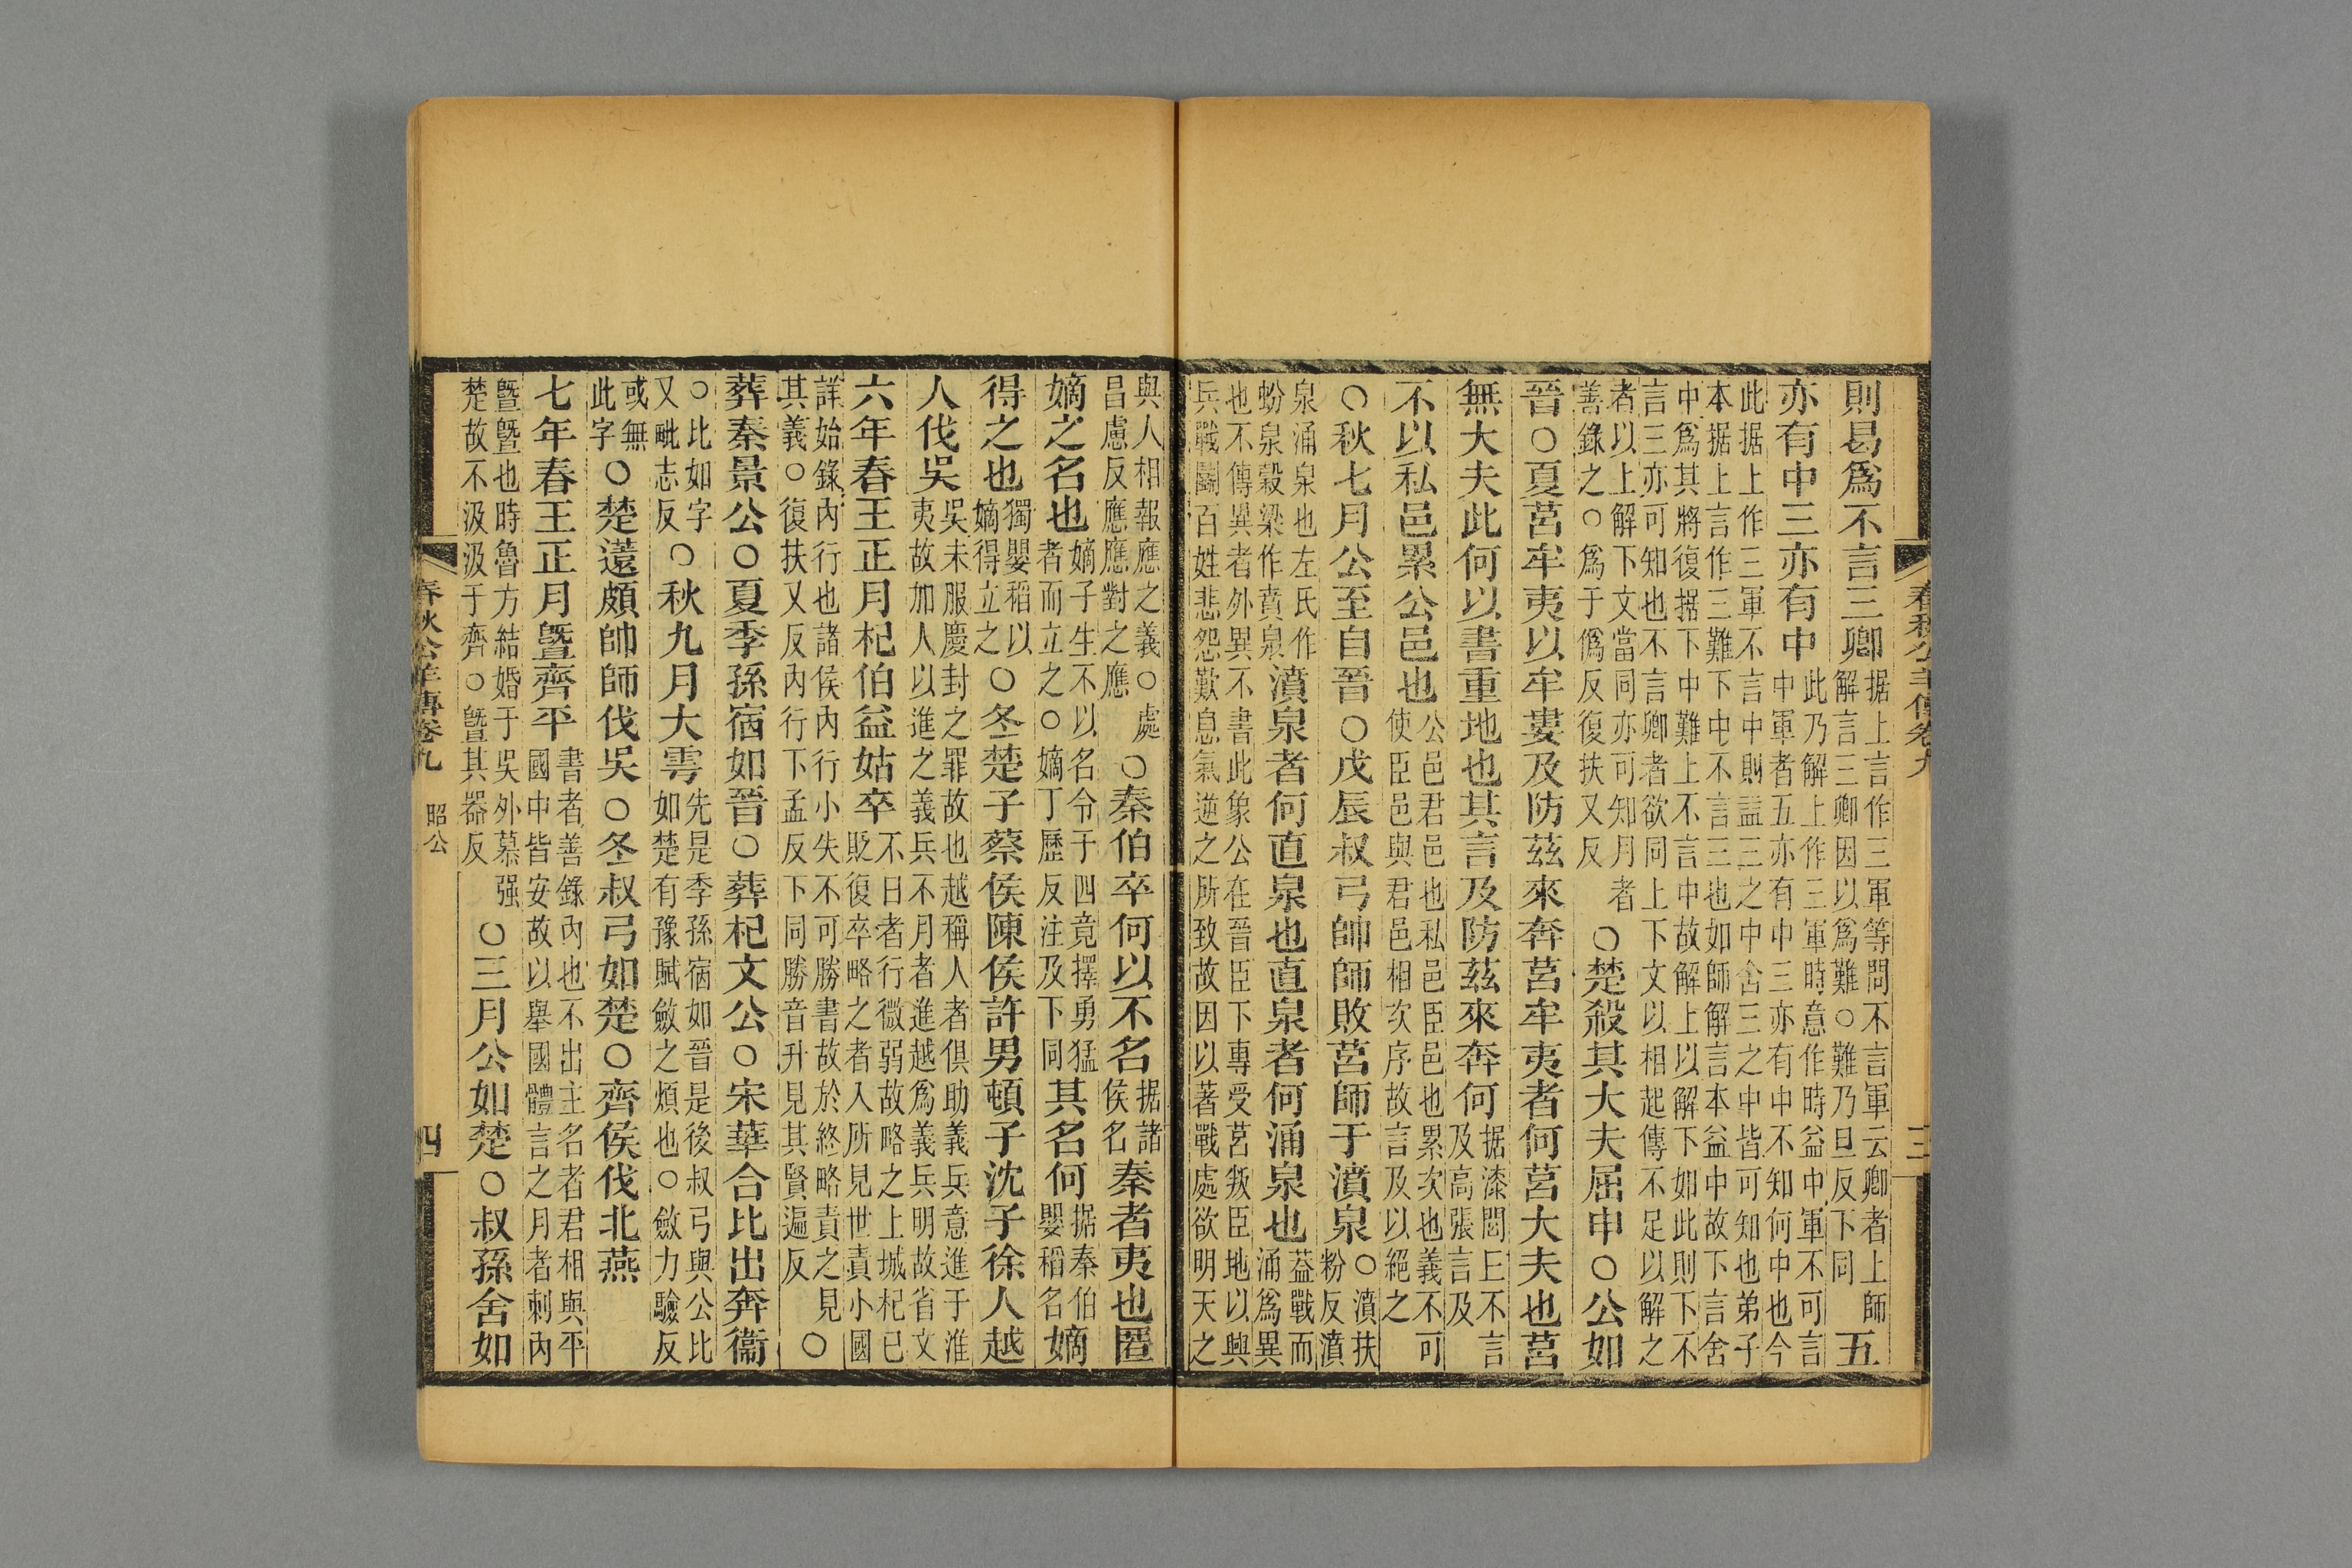 則曷爲不言三卿据上言作三軍等問不言軍云卿者上師解言三卿因以爲難○難乃旦反下同五
亦有中三亦有中此乃解上作三軍時意作時益中軍不可言中軍者五亦有中三亦有中不知何中也今
此据上作三軍不言中則益三之中舍三之中皆可知也弟子本据上言作三難下中不言三也如師解言本益中故下言舍
中爲其將復据下中難上不言中故解上以解下如此則下不言三亦可知也不言卿者欲同上下文以相起傳不足以解之
者以上解下文當同亦可知月者善錄之○爲于僞反復扶又反○楚殺其大夫屈申○公如
晉○夏莒牟夷以牟婁及防茲來奔莒牟夷者何莒大夫也莒
無大夫此何以書重地也其言及防茲來奔何据漆閭丘不言及高張言及
不以私邑累公邑也公邑君邑也私邑臣邑也累次也義不可使臣邑與君邑相次序故言及以絕之
○秋七月公至自晉○戊辰叔弓帥師敗莒師于濆泉○濆扶粉反濆
泉涌泉也左氏作蚡泉穀梁作賁泉濆泉者何直泉也直泉者何涌泉也葢戰而涌爲異
也不傳異者外異不書此象公在晉臣下專受莒叛臣地以興兵戰鬬百姓悲怨歎息氣逆之所致故因以著戰處欲明天之
春秋公羊傳卷九 三
與人相報應之義○處昌慮反應應對之應○秦伯卒何以不名据諸侯名秦者夷也匿
嫡之名也嫡子生不以名令于四竟擇勇猛者而立之○嫡丁歷反注及下同其名何据秦伯嬰稻名嫡
得之也獨嬰稻以嫡得立之○冬楚子蔡侯陳侯許男頓子沈子徐人越
人伐吳吳未服慶封之罪故也越稱人者俱助義兵意進于淮夷故加人以進之義兵不月者進越爲義兵明故省文
六年春王正月杞伯益姑卒不日者行微弱故略之上城杞已貶復卒略之者入所見世責小國
詳始錄內行也諸侯內行小失不可勝書故於終略責之見其義○復扶又反內行下孟反下同勝音升見其賢遍反○
葬秦景公○夏季孫宿如晉○葬杞文公○宋華合比出奔衞
○比如字又毗志反○秋九月大雩先是季孫宿如晉是後叔弓與公比如楚有豫賦斂之煩也○斂力驗反
或無此字○楚薳頗帥師伐吳○冬叔弓如楚○齊侯伐北燕
七年春王正月暨齊平書者善錄內也不出主名者君相與平國中皆安故以舉國體言之月者刺內
暨暨也時魯方結婚于吳外慕强楚故不汲汲于齊○暨其器反○三月公如楚○叔孫舍如
春秋公羊傳卷九 昭公 四